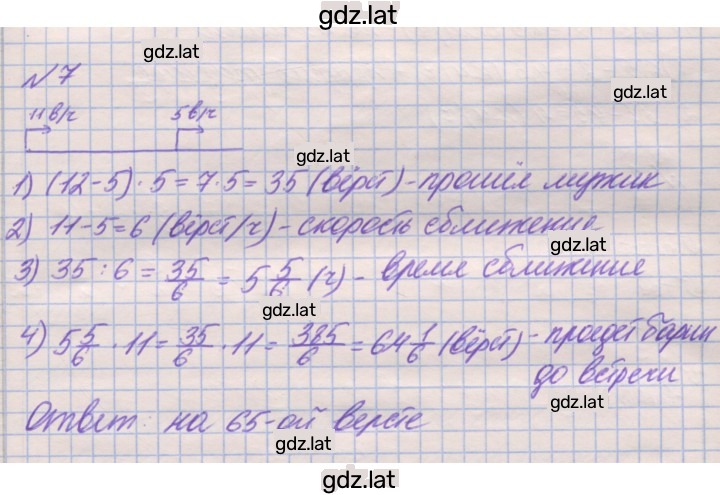 gdz.lat
gdz.lat
№7
gdz.lat
11 в/ч 5 в/ч
gdz.lat
1) (12-5)·5=7·5=35 (вёрст)-прошёл мужик
2) 11-5=6 (вёрст/ч)-скорость сближения
gdz.lat
3) 35:6=35/6=5 5/6 (ч)-время сближение
gdz.lat
4) 5 5/6·11=35/6·11=385/6=64 1/6 (вёрст)-проедет барин
до встречи
gdz.lat
Ответ: на 65-ой версте
gdz.lat
gdz.lat